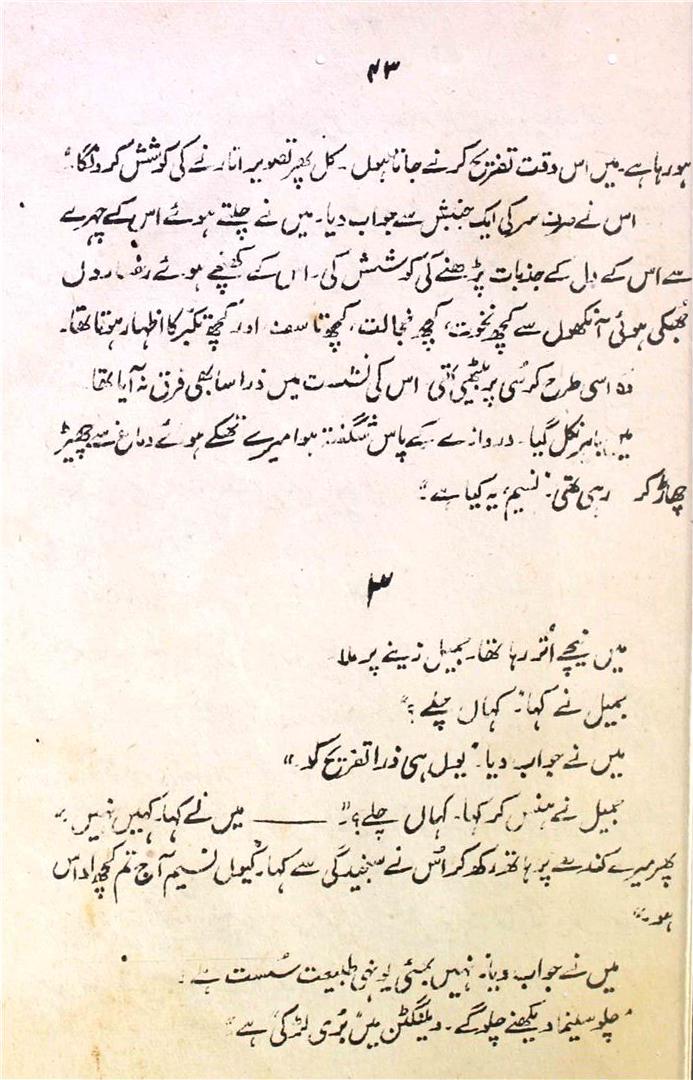 ۴۳
ہو رہا ہے۔ میں اس وقت تفریح کرنے جاتا ہوں۔ کل پھر تصویر اتارنے کی کوشش کروں گا۔"
اس نے صرف سر کی ایک جنبش سے جواب دیا۔ میں نے چلتے ہوئے اس کے چہرے
سے اس کے دل کے جذبات پڑھنے کی کوشش کی۔ اس کے کھنچے ہوئے رخساروں
جھکی ہوئی آنکھوں سے کچھ نخوت، کچھ خجالت، کچھ تاسف اور کچھ تکبّر کا اظہار ہوتا تھا۔
وہ اسی طرح کرسی پر بیٹھی تھی اس کی نشست میں ذرا سا بھی فرق نہ آیا تھا۔
میں باہر نکل گیا۔ دروازے کے پاس شگفتہ ہوا میرے تھکے ہوئے دماغ سے چھیڑ
چھاڑ کر رہی تھی۔ نسیم، یہ کیا ہے۔"
۳
میں نیچے اُتر رہا تھا۔ جمیل زینے پر ملا
جمیل نے کہا۔ کہاں چلے؟"
میں نے جواب دیا۔ "یوں ہی ذرا تفریح کو۔"
جمیل نے ہنس کر کہا۔ کہاں چلے؟" —— میں نے کہا۔ کہیں نہیں۔"
پھر میرے کندھے پر ہاتھ رکھ کر اُس نے سنجیدگی سے کہا۔ "کیوں نسیم آج تم کچھ اداس
ہو۔"
میں نے جواب دیا۔ نہیں بھئی یونہی طبیعت سُست ہے۔
"چلو سینما دیکھنے چلو گے۔ ویلنگٹن میں "بُری لڑکی ہے"